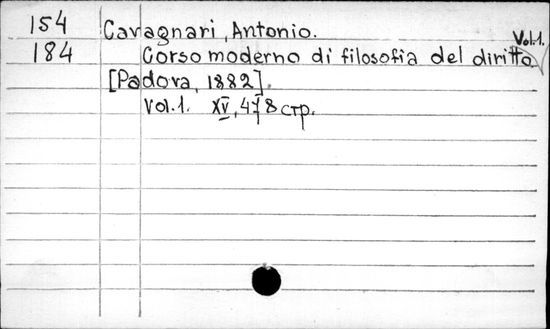 154 Cavagnari, Antonio.
Vol.1.
184 Corso moderno di filosofia del diritto
[Padova, 1882].
Vol.1. XV, 478 стр.